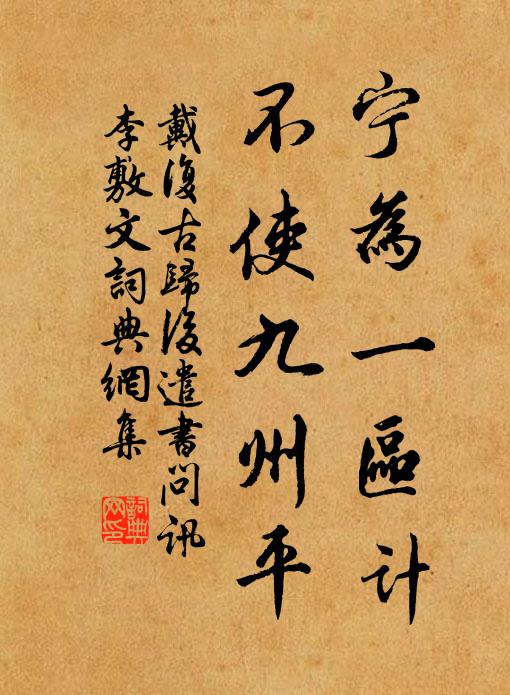 宁為一區計
不使九州平
戴復古歸後遣書問訊
李敷文詞典網集
詞典网印